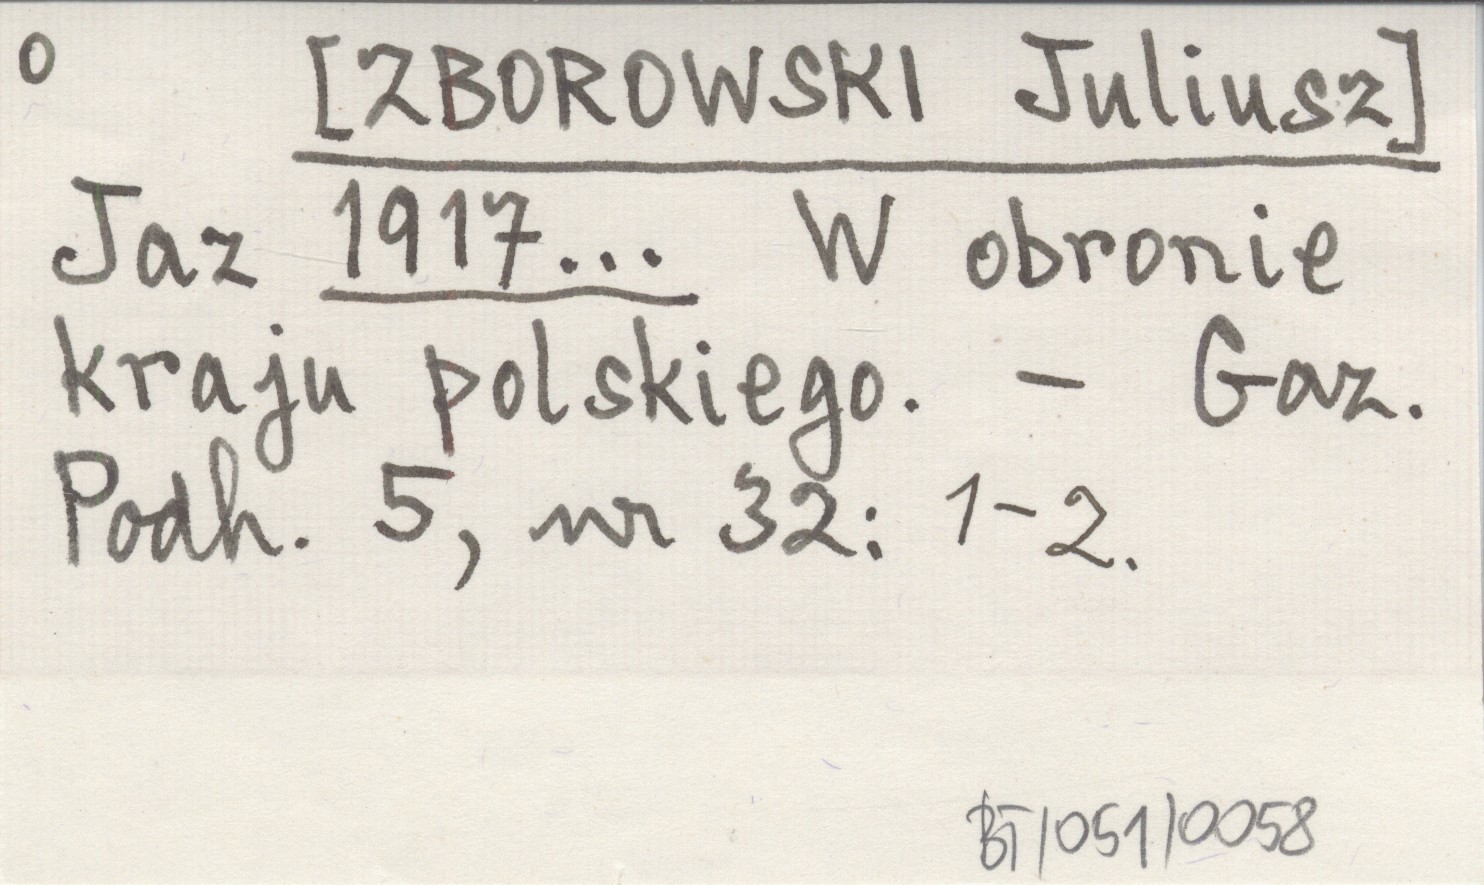 o [ZBOROWSKI Juliusz]
Jaz 1917... W obronie
kraju polskiego. - Gaz.
Podh. 5, nr 32: 1-2.
BT/051/0058